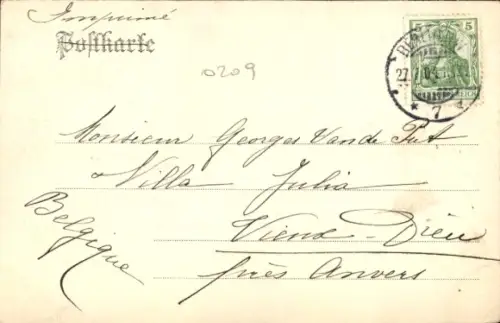 Imprimé
Postkarte
0209
5 5
BERLIN
27.7.
* 7
Monsieur Georges Van de Put
Villa Julia
Vieux-Dieu
près Anvers
Belgique